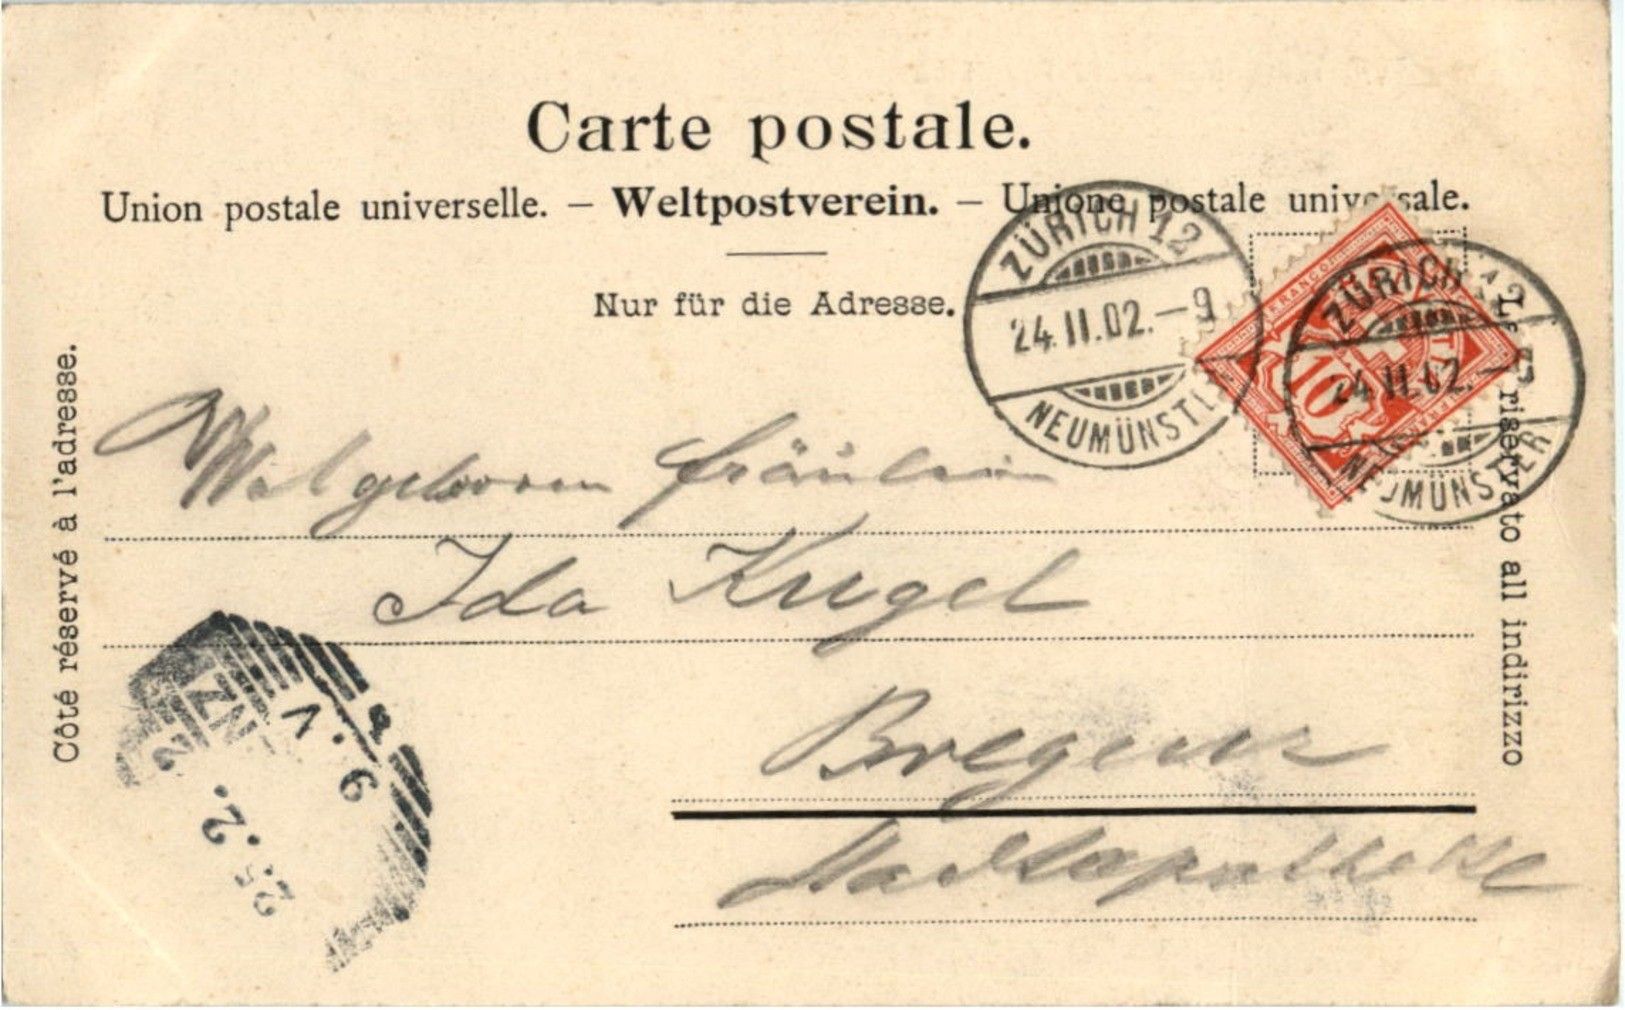 Carte postale.
Union postale universelle. — Weltpostverein. — Unione postale universale.
Nur für die Adresse.
ZÜRICH 12
24.II.02.–9
NEUMÜNSTER
FRANCO
10
ZÜRICH 12
24.II.02.–9
NEUMÜNSTER
Côté réservé à l'adresse.
Lato riservato all indirizzo
Wolgeboren Fräulein
Ida Krugel
Bregenz
Stadtapotheke
25.2.
6.V